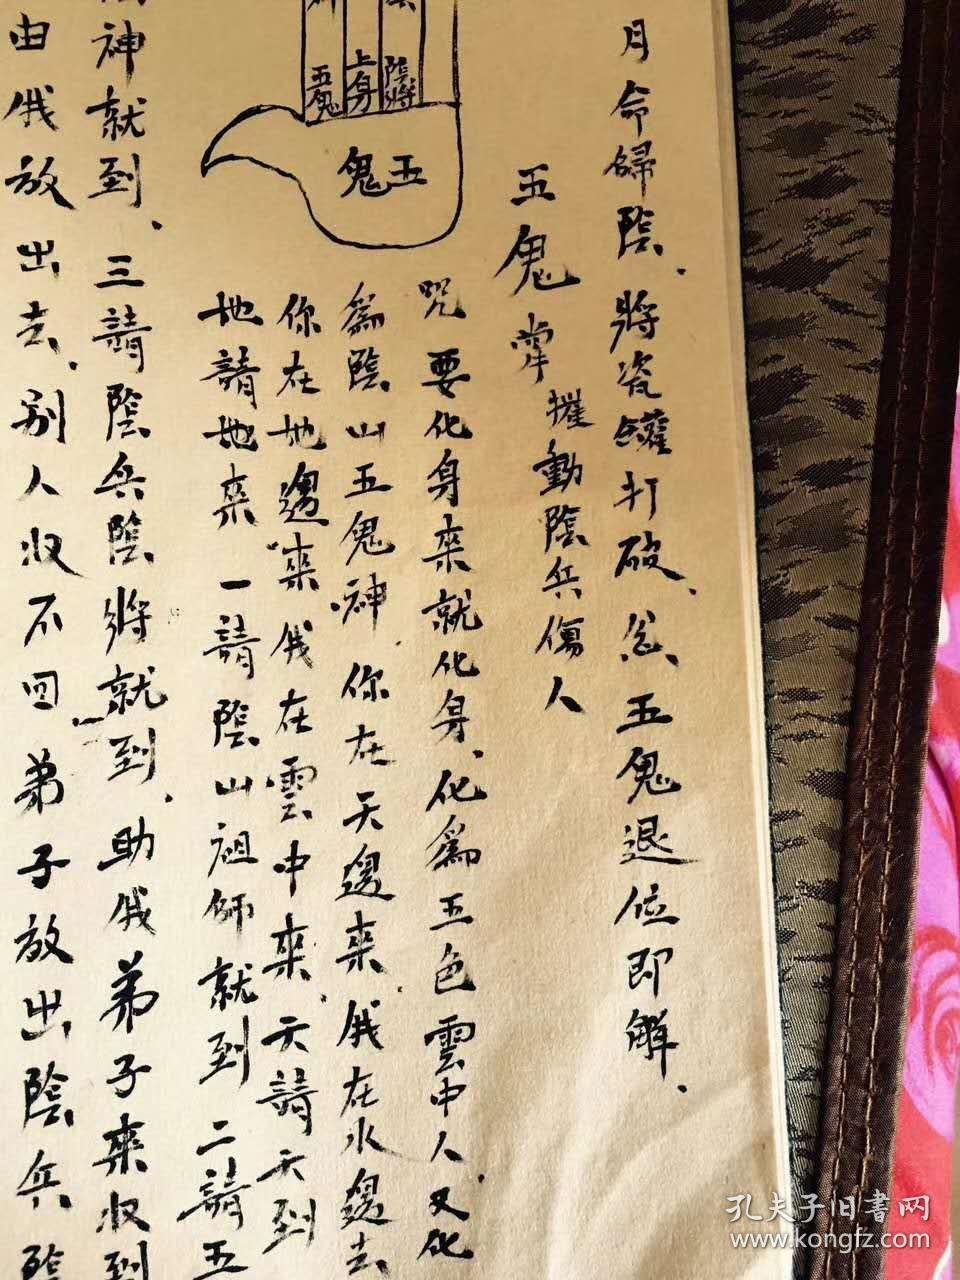 月命歸陰、將瓷罐打破、念五鬼退位即解、
五鬼掌 摧動陰兵傷人
咒 要化身來就化身、化為五色雲中人、又化
為陰山五鬼神、你在天邊來、俄在水邊去
你在地邊來、俄在雲中來、天請天到
地請地來 一請陰山祖師就到 二請五
神就到、三請陰兵陰將就到、助俄弟子來收到
由俄放出去、别人收不回、弟子放出陰兵陰
五鬼
上身
陰將
五鬼
孔夫子旧书网
www.kongfz.com